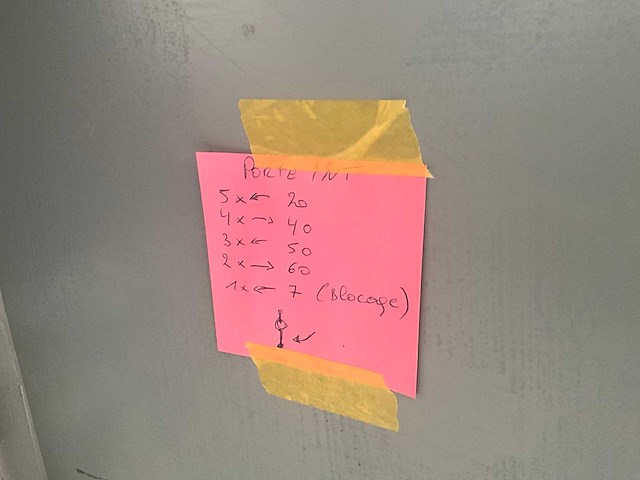 PORTE INT
5x ← 20
4x → 40
3x ← 50
2x → 60
1x ← 7 (Blocage)